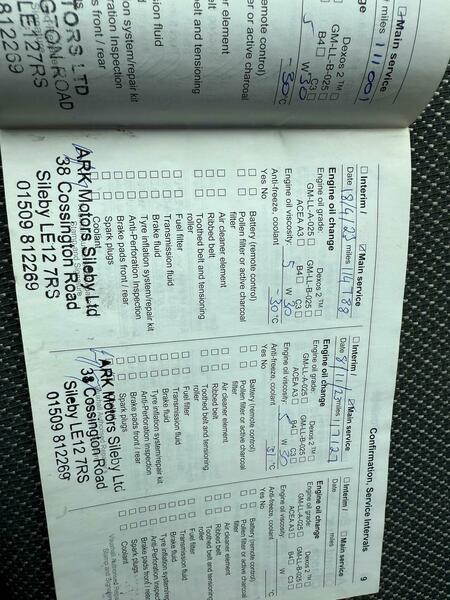 Confirmation, Service Intervals
9
Main service
miles 111001
Dexos 2 ™
GM-LL-B-025
B4 C3
5 W 30
-30°C
(remote control)
or active charcoal
er element
belt and tensioning
fluid
on system/repair kit
oration Inspection
ds front / rear
TORS LTD
TON ROAD
LE12 7RS
812269
Interim / Main service
Date 18/4/23 miles
Engine oil change
Engine oil grade: Dexos 2 ™
GM-LL-A-025 GM-LL-B-025
ACEA A3 B4 C3
Engine oil viscosity: 5 W 30
Anti-freeze, coolant -30°C
Yes No
Battery (remote control)
Pollen filter or active charcoal
filter
Air cleaner element
Ribbed belt
Toothed belt and tensioning
roller
Fuel filter
Transmission fluid
Brake fluid
Tyre inflation system/repair kit
Anti-Perforation Inspection
Brake pads front / rear
Spark plugs
Coolant
ARK Motors Sileby Ltd
38 Cossington Road
Sileby LE12 7RS
01509 812269
Interim / Main service
Date 8/11/23 miles
Engine oil change
Engine oil grade: Dexos 2 ™
GM-LL-A-025 GM-LL-B-025
ACEA A3 B4 C3
Engine oil viscosity: 5 W 30
Anti-freeze, coolant °C
Yes No
Battery (remote control)
Pollen filter or active charcoal
filter
Air cleaner element
Ribbed belt
Toothed belt and tensioning
roller
Fuel filter
Transmission fluid
Brake fluid
Tyre inflation system/repair kit
Anti-Perforation Inspection
Brake pads front / rear
Spark plugs
ARK Motors Sileby Ltd
38 Cossington Road
Sileby LE12 7RS
01509 812269
Interim / Main service
Date miles
Engine oil change
Engine oil grade: Dexos 2 ™
GM-LL-A-025 GM-LL-B-025
ACEA A3 B4 C3
Engine oil viscosity: W
Anti-freeze, coolant °C
Yes No
Battery (remote control)
Pollen filter or active charcoal
filter
Air cleaner element
Ribbed belt
Toothed belt and tensioning
roller
Fuel filter
Transmission fluid
Brake fluid
Tyre inflation system/repair kit
Anti-Perforation Inspection
Brake pads front / rear
Spark plugs
Coolant